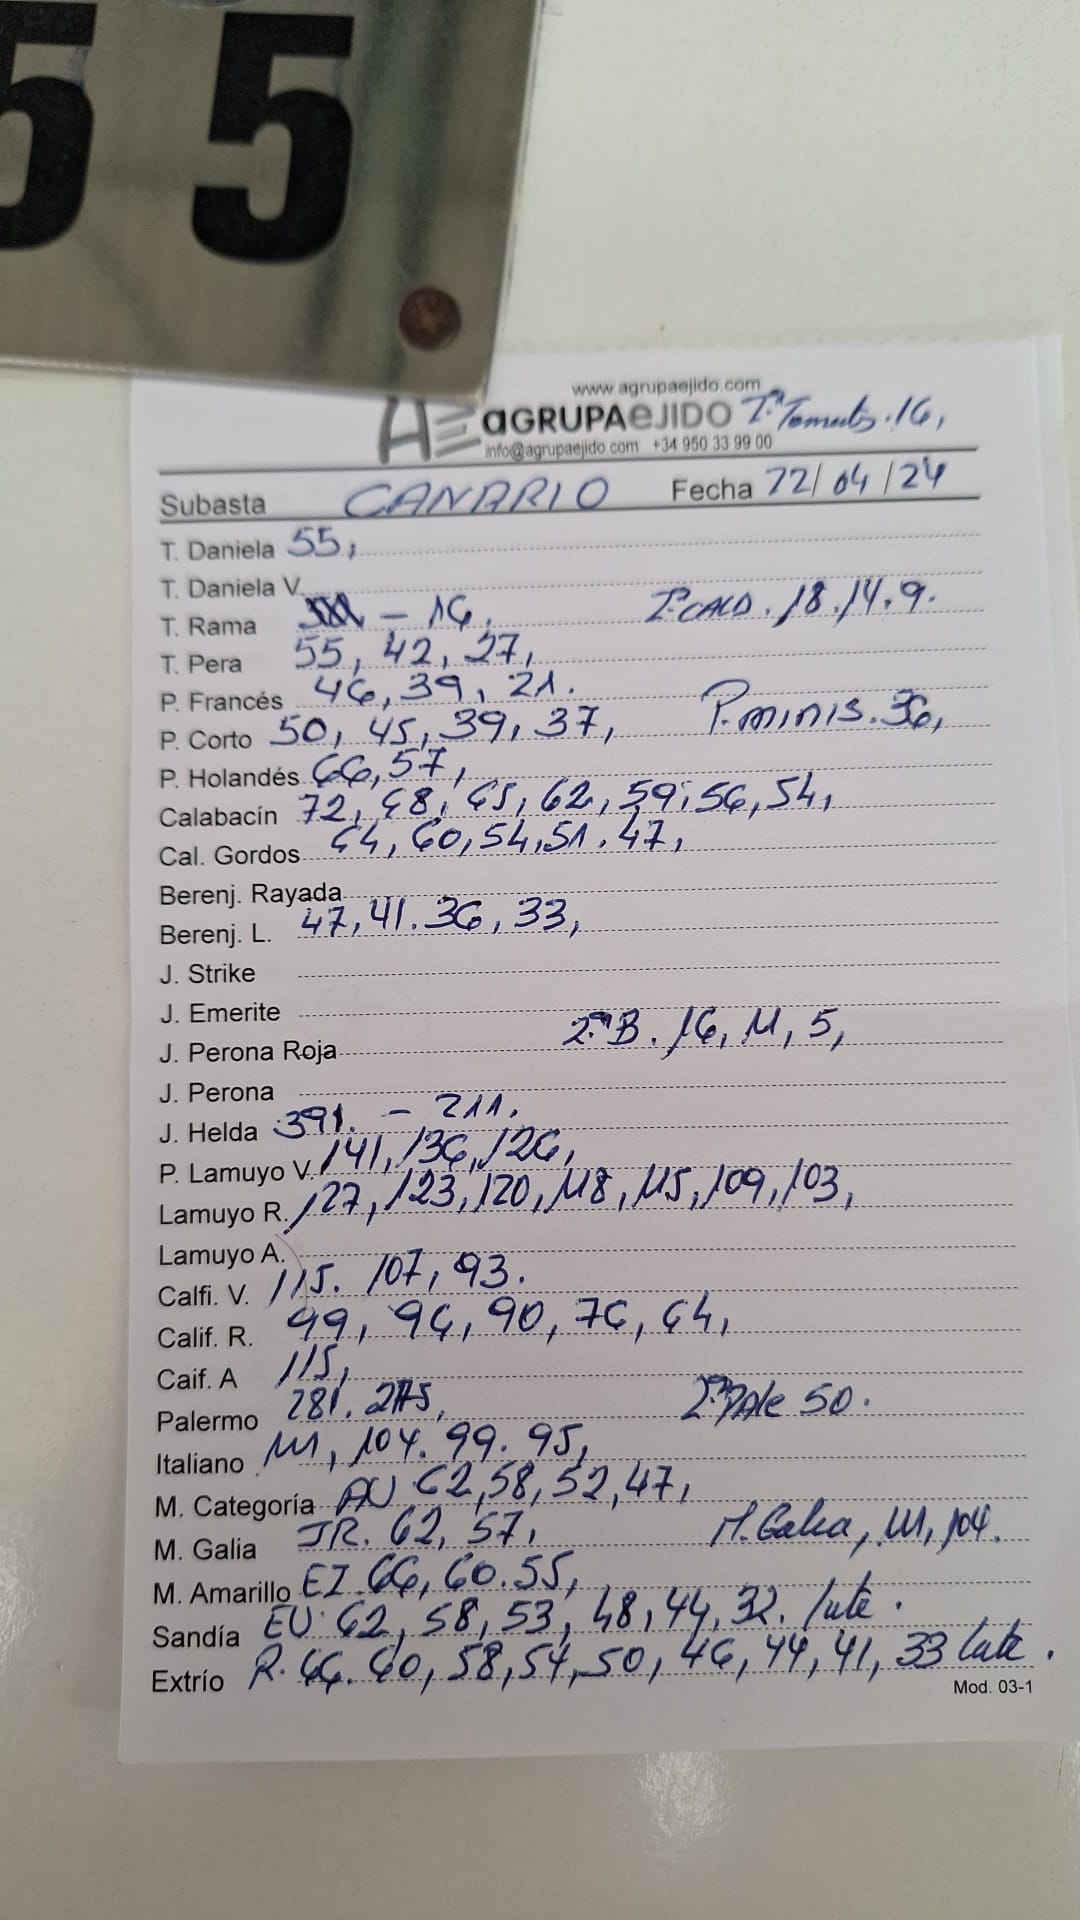 55
www.agrupaejido.com
AE aGRUPAeJIDO T.ª Tomates. 16,
info@agrupaejido.com +34 950 33 99 00
Subasta CANARIO Fecha 22/04/24
T. Daniela 55,
T. Daniela V.
T. Rama - 16, 18. 14. 9.
T. Pera 55, 42, 27,
P. Francés 46, 39, 21.
P. Corto 50, 45, 39, 37, P. minis. 36,
P. Holandés 66, 57,
Calabacín 72, 68, 65, 62, 59, 56, 54,
Cal. Gordos 64, 60, 54, 51. 47,
Berenj. Rayada
Berenj. L. 47, 41. 36, 33,
J. Strike
J. Emerite
J. Perona Roja 2.ª B. 16, 11, 5,
J. Perona
J. Helda 391. - 211.
P. Lamuyo V. 141, 136, 126,
Lamuyo R. 127, 123, 120, 118, 115, 109, 103,
Lamuyo A.
Calfi. V. 115. 107, 93.
Calif. R. 99, 96, 90, 76, 64,
Caif. A 115,
Palermo 281. 275, 2.ª PAle 50.
Italiano 111, 104. 99. 95,
M. Categoría AU 62, 58, 52, 47,
M. Galia JR. 62, 57, M. Galia, 111, 104.
M. Amarillo EI 66, 60. 55,
Sandía EU 62, 58, 53, 48, 44, 32. lute.
Extrío R. 66. 60, 58, 54, 50, 46, 44, 41, 33 lute.
Mod. 03-1